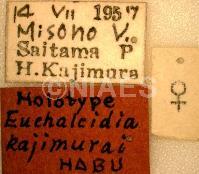 14 VII 1957
Misono V.
Saitama P
H. Kajimura
♀
Holotype
Euchalcidia
kajimurai
HABU
© NIAES